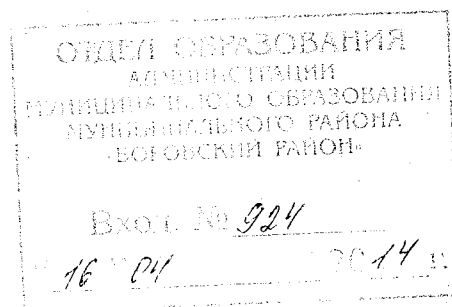 ОТДЕЛ ОБРАЗОВАНИЯ
АДМИНИСТРАЦИИ
МУНИЦИПАЛЬНОГО ОБРАЗОВАНИЯ
МУНИЦИПАЛЬНОГО РАЙОНА
«БОРОВСКИЙ РАЙОН»
Вход. № 924
" 16 " 04 2014 г.